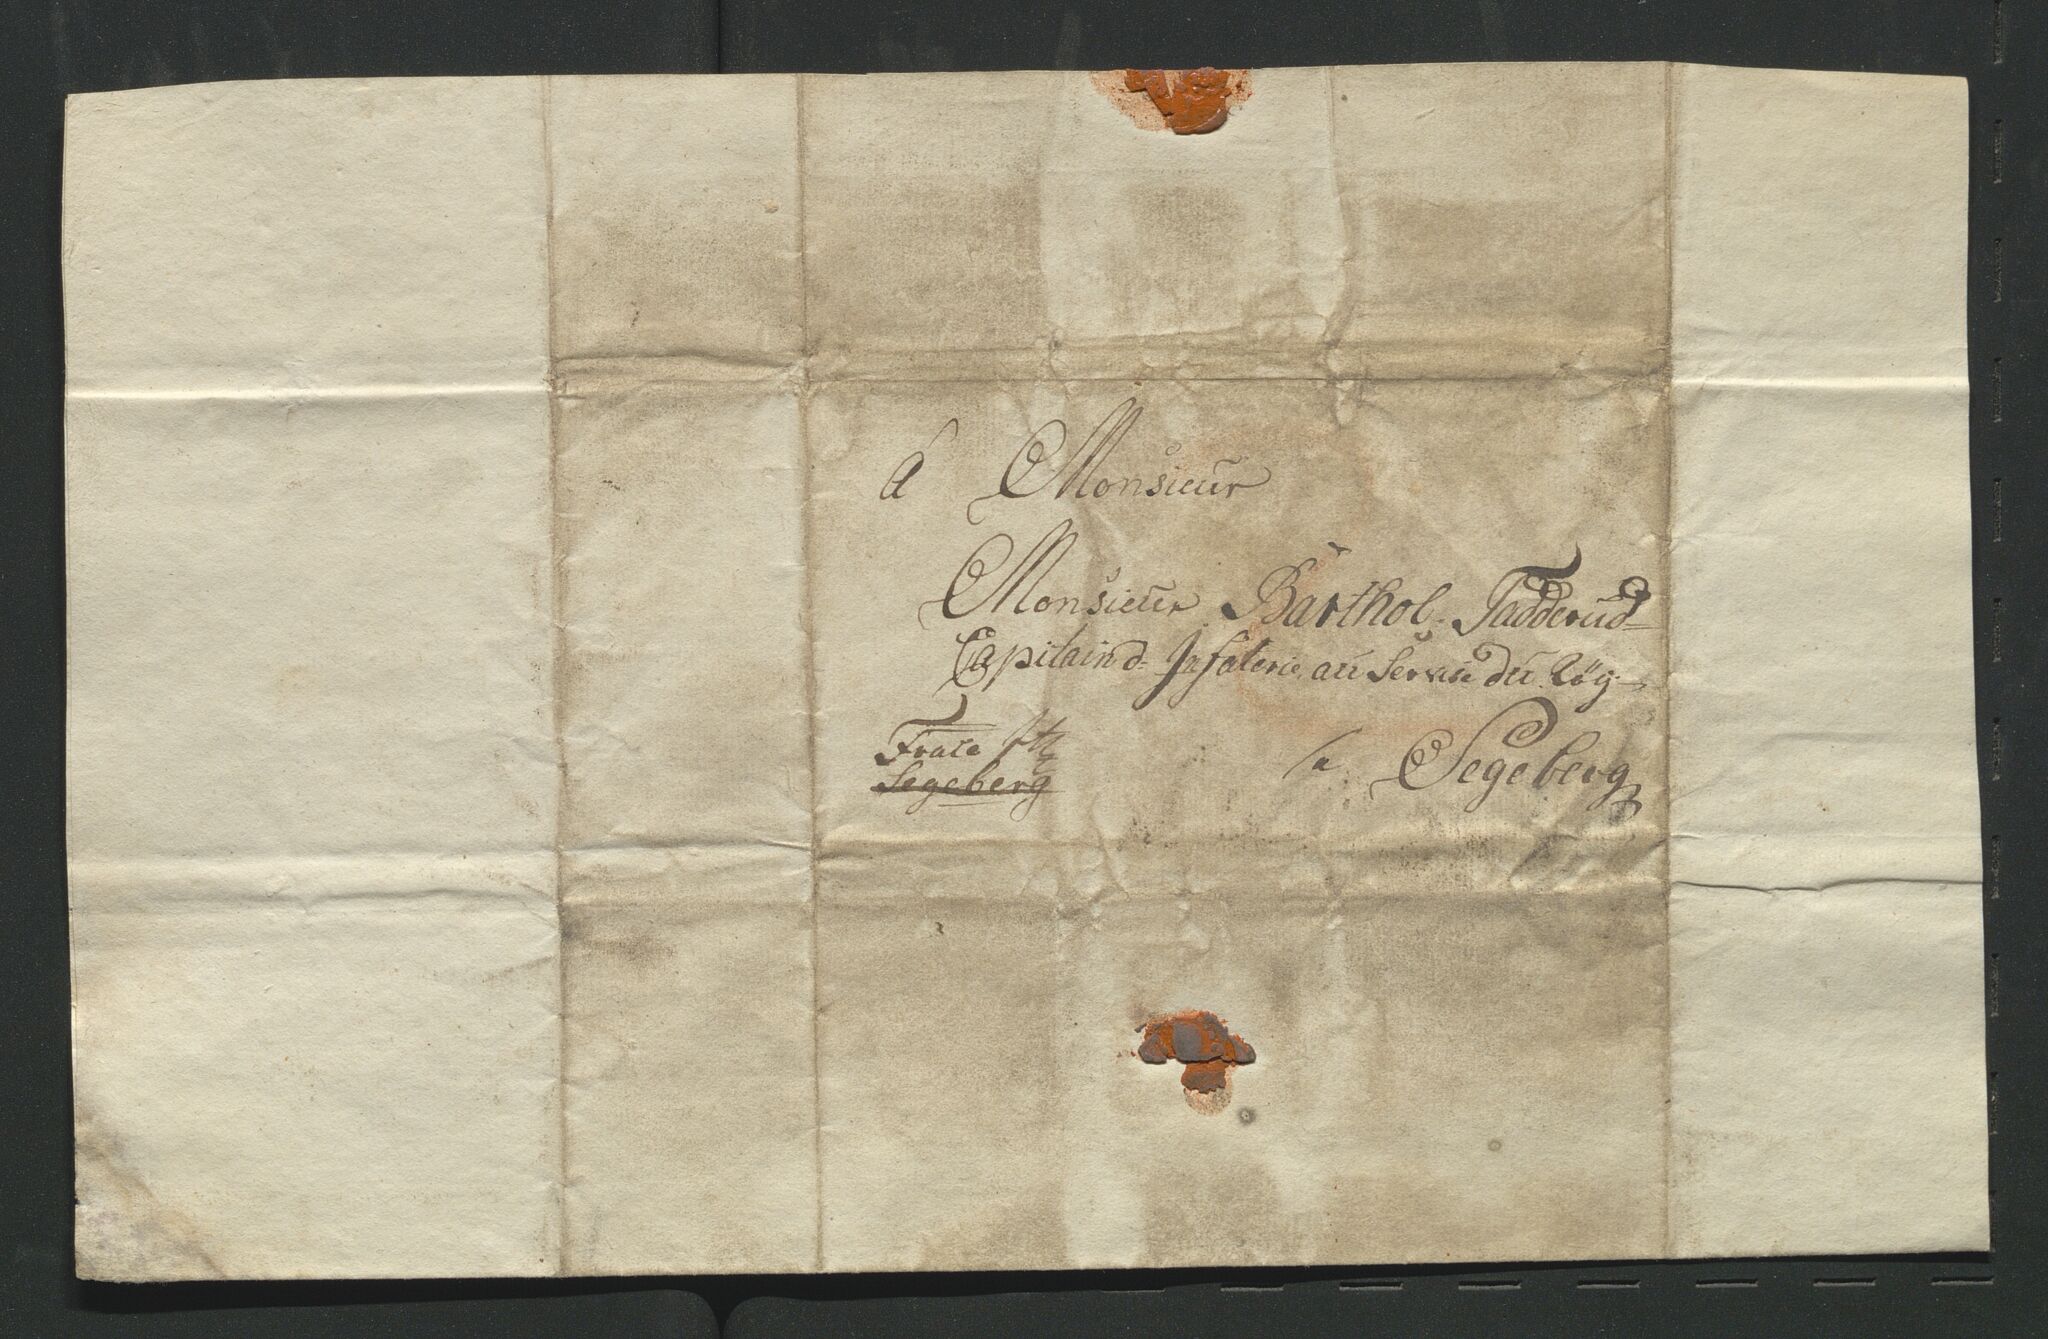 a Monsieur
Monsieur Barthol. Tadderud
Capitain d= Infaterie au Servise du Röy
a Segeberg
Segeberg